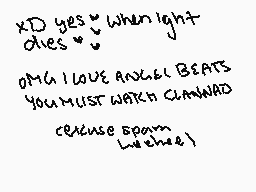 xD yes ♥ ♥ when ight
dies ♥ ♥
OMG I LOVE ANGEL BEATS
YOU MUST WATCH CLANNAD
cexcuse spam